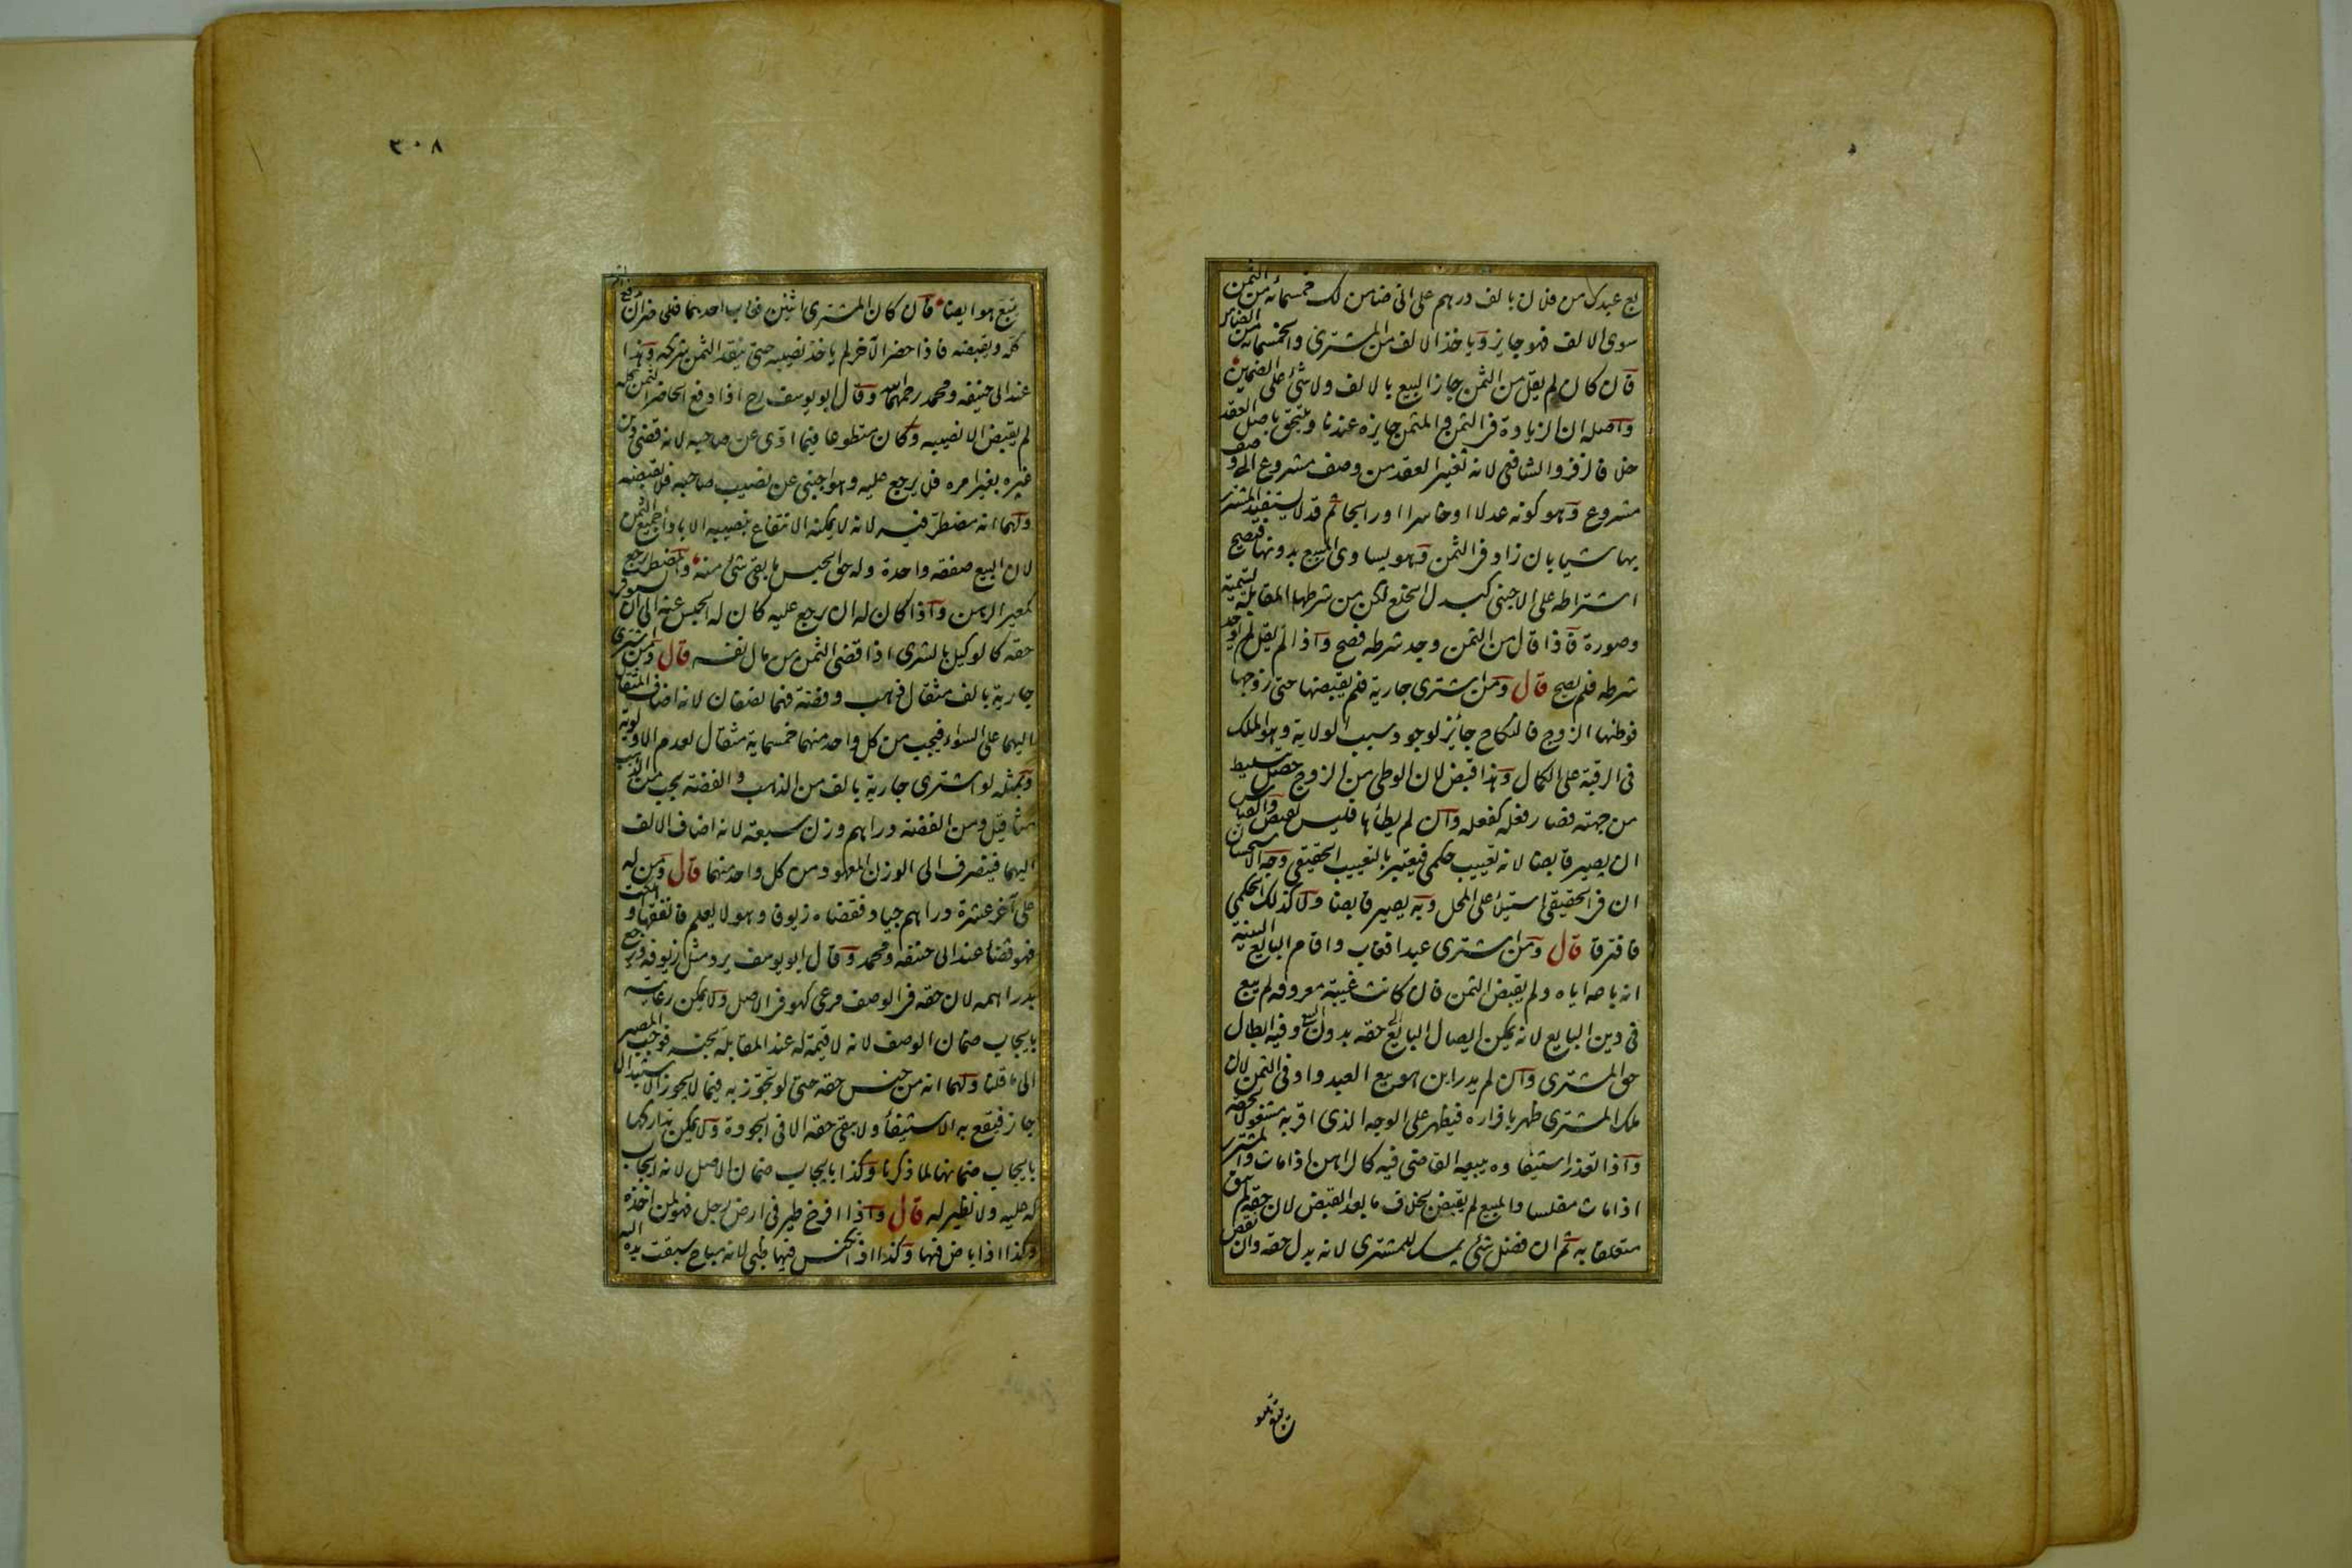 بع عبدك من فلان بالف درهم على انى ضامن لك خمسمائه من الثمن
سوى الالف فهو جايز وياخذ الالف من المشترى والخمسمائه من الضامن
فان كان لم يقل من الثمن جاز البيع بالالف ولا شئ على الضمين
واصله ان الزيادة فى الثمن والمثمن جايزه عندنا وتلتحق باصل العقد
خلافا لزفر والشافعى لانه تغيير العقد من وصف مشروع الى وصف
مشروع وهو كونه عدلا او خاسرا او رابحا ثم قد لا يستفيد المشترى
بها شيا بان زاد فى الثمن وهو يساوى المبيع بدونها فيصح
اشتراطه على الاجنبى كبدل الخلع لكن من شرطها المقابلة تسمية
وصورة فاذا قال من الثمن وجد شرطه فصح واذا لم يقل لم يوجد
شرطه فلم يصح قال ومن اشترى جارية فلم يقبضها حتى زوجها
فوطئها الزوج فالنكاح جائز لوجود سبب الولاية وهو الملك
فى الرقبة على الكمال وهذا قبض لان الوطى من الزوج حصل بتسليط
من جهته فصار فعله كفعله وان لم يطأها فليس بقبض والقياس
ان يصير قابضا لانه تعييب حكمى فيعتبر بالتعييب الحقيقى وجه الاستحسان
ان فى الحقيقى استيلاء على المحل وبه يصير قابضا ولا كذلك الحكمى
فافترقا قال ومن اشترى عبدا فغاب واقام البايع البينة
انه باعه اياه ولم يقبض الثمن فان كانت غيبته معروفه لم يبع
فى دين البايع لانه يمكن ايصال البايع الى حقه بدون البيع وفيه ابطال
حق المشترى وان لم يدر اين هو بيع العبد واوفى الثمن لان
ملك المشترى ظهر باقراره فيظهر على الوجه الذى اقر به مشغولا بحقه
واذا تعذر استيفاوه يبيعه القاضى فيه كالراهن اذا مات والمشترى
اذا مات مفلسا والمبيع لم يقبض بخلاف ما بعد القبض لان حقه لم يبق
متعلقا به ثم ان فضل شئ يمسك للمشترى لانه بدل حقه وان نقص
يتبع هو ايضا فان كان المشترى اثنين فغاب احدهما فللحاضر ان يدفع الثمن
كله ويقبضه فاذا حضر الآخر لم ياخذ نصيبه حتى ينقد الثمن شريكه وهذا
عند ابى حنيفه ومحمد رحمهما الله وقال ابو يوسف رح اذا دفع الحاضر الثمن كله
لم يقبض الا نصيبه وكان متطوعا فيما ادى عن صاحبه لانه قضى دين
غيره بغير امره فلا يرجع عليه وهو اجنبى عن نصيب صاحبه فلا يقبضه
ولهما انه مضطر فيه لانه لا يمكنه الانتفاع بنصيبه الا باداء جميع الثمن
لان البيع صفقه واحدة وله حق الحبس ما بقى شئ منه والمضطر يرجع
كمعير الرهن واذا كان له ان يرجع عليه كان له الحبس عنه الى ان يستوفى
حقه كالوكيل بالشرى اذا قضى الثمن من مال نفسه قال ومن اشترى
جارية بالف مثقال ذهب وفضة فهما نصفان لانه اضاف المثقال
اليهما على السواء فيجب من كل واحد منهما خمسماية مثقال لعدم الاولوية
وبمثله لو اشترى جارية بالف من الذهب والفضه يجب من الذهب
مثاقيل ومن الفضه دراهم وزن سبعة لانه اضاف الالف
اليهما فينصرف الى الوزن المعهود من كل واحد منهما قال ومن له
على آخر عشرة دراهم جياد فقضاه زيوفا وهو لا يعلم فانفقها او هلكت
فهو قضاء عند ابى حنيفه ومحمد وقال ابو يوسف يرد مثل زيوفه ويرجع
بدراهمه لان حقه فى الوصف مرعى كهو فى الاصل ولا يمكن رعايته
بايجاب ضمان الوصف لانه لا قيمة له عند المقابلة بجنسه فوجب المصير
الى ما قلنا ولهما انه من جنس حقه حتى لو تجوز به فيما لا يجوز الاستبدال
جاز فيقع به الاستيفاء ولا يبقى حقه الا فى الجودة ولا يمكن تداركها
بايجاب ضمانها لما ذكرنا وكذا بايجاب ضمان الاصل لانه ايجاب
له عليه ولا نظير له قال واذا افرخ طير فى ارض رجل فهو لمن اخذه
وكذا اذا باض فيها وكذا اذا تكنس فيها ظبى لانه مباح سبقت يده اليه
٣٠٨